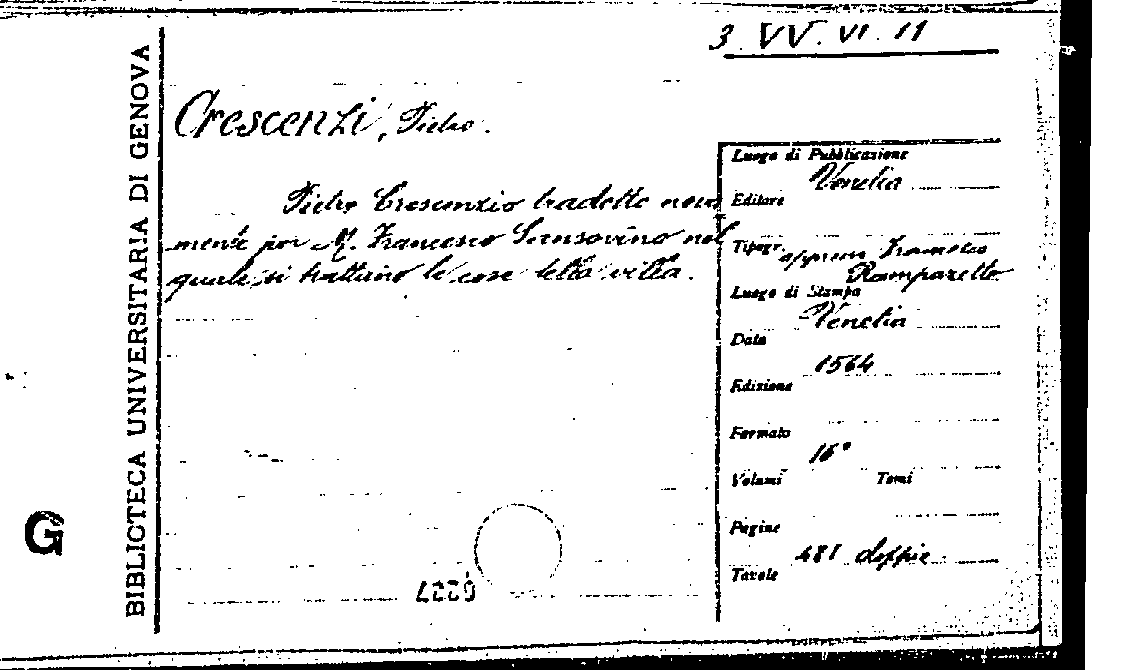 3 VV. VI. 11
BIBLIOTECA UNIVERSITARIA DI GENOVA
G
Crescenzi, Pietro.
Pietro Crescenzio tradotto nova
mente per M. Francesco Sansovino nel
quale si trattano le cose della villa.
Luogo di Pubblicazione
Venetia
Editore
Tipogr. appresso Francesco
Rampazetto
Luogo di Stampa
Venetia
Data
1564
Edizione
Formato
16°
Volumi Tomi
Pagine
481 doppie
Tavole